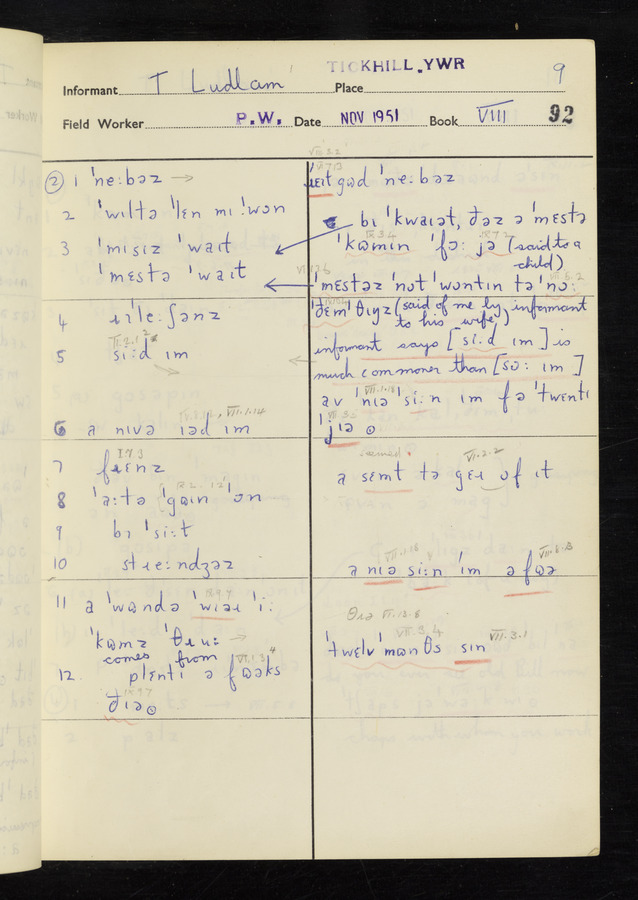 TICKHILL, YWR
Informant T Ludlam Place 9
Field Worker P.W. Date NOV 1951 Book VIII 92
② 1 ˈneːbəz →
2 ˈwɪltə ˈlɛn mɪ ˈwɒn
3 ˈmɪsɪz ˈwaɪt
ˈmɛstə ˈwaɪt
4 ɹɪˈleːʃənz
5 siːd ɪm
6 a nɪvə ɪəd ɪm
7 fɹɛnz
8 ˈaːtə ˈgaɪn ˈɒn
9 bɪ ˈsiːt
10 stɹeːndʒəz
11 a ˈwɒndə ˈwɪəɹ ˈiː
ˈkɒmz ˈθɹuː →
comes from
12. plɛntɪ ə fɒəks
ðɪə⊙
VIII.2.2
VII.7.13
ˈɹɛɪt gʊd ˈneːbəz
bɪ ˈkwaɪət, ðəz ə ˈmɛstə
ˈkɒmɪn ˈfɔː jə (said to a
child)
ˈmɛstəz ˈnɒt ˈwɒntɪn tə ˈnɔː
ˈðɛm ˈθɪŋz (said of me by informant
to his wife)
informant says [siːd ɪm] is
much commoner than [sɔː ɪm]
av ˈnɪə ˈsiːn ɪm fə ˈtwɛntɪ
ˈjɪə⊙
a sɛmt tə gɛɹ ɒf ɪt
a nɪə siːn ɪm ə fɒə
θɪə VI.13.8
ˈtwɛlv ˈmɒnθs sɪn VII.3.1